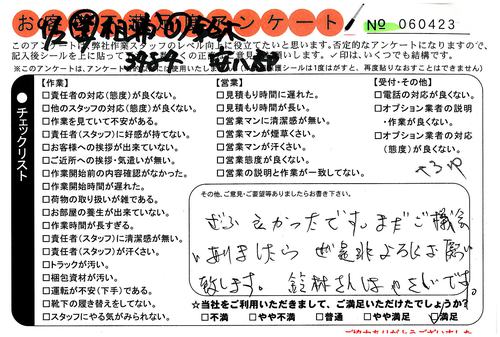 お客様満足度アンケート! № 060423
このアンケートは、弊社作業スタッフのレベル向上に役立てたいと思います。否定的なアンケートになりますので、
【作業】
□責任者の対応(態度)が良くない。
□他のスタッフの対応(態度)が良くない。
□作業を見ていて不安がある。
□責任者(スタッフ)に好感が持てない。
□お客様への挨拶が出来ていない。
□ご近所への挨拶・気遣いが無い。
□作業開始前の内容確認がなかった。
□作業開始時間が遅れた。
□荷物の取り扱いが雑である。
□お部屋の養生が出来ていない。
□作業時間が長すぎる。
□責任者(スタッフ)に清潔感が無い。
□責任者(スタッフ)が汗くさい。
□トラックが汚い。
□梱包資材が汚い。
□運転が不安(下手)である。
□靴下の履き替えをしてない。
□スタッフにやる気がみられない。
【営業】
□見積もり時間に遅れた。
□見積もり時間が長い。
□営業マンに清潔感が無い。
□営業マンが煙草くさい。
□営業マンが汗くさい。
□営業態度が良くない。
□営業の説明と作業が一致してない。
【受付・その他】
□電話の対応が良くない。
□オプション業者の説明
・作業が良くない。
□オプション業者の対応
(態度)が良くない。
●チェックリスト
その他、ご意見・ご要望等ありましたらお書き下さい。
よかったです。まだご機会
ありましたら 是非よろしくお願い
致します。鈴林さんはやさしいです。
☆当社をご利用いただきまして、ご満足いただけたでしょうか?
□不満 □やや不満 □普通 □やや満足 □満足
ご協力ありがとうございました